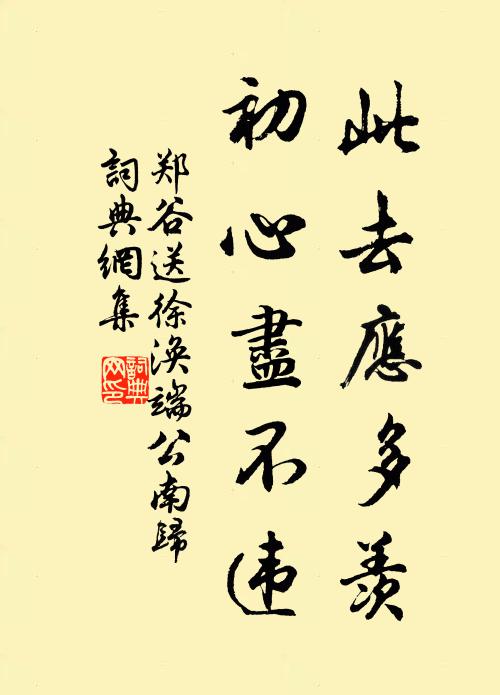 此去應多羨
初心盡不违
郑谷送徐渙端公南歸
詞典網集
詞典网印